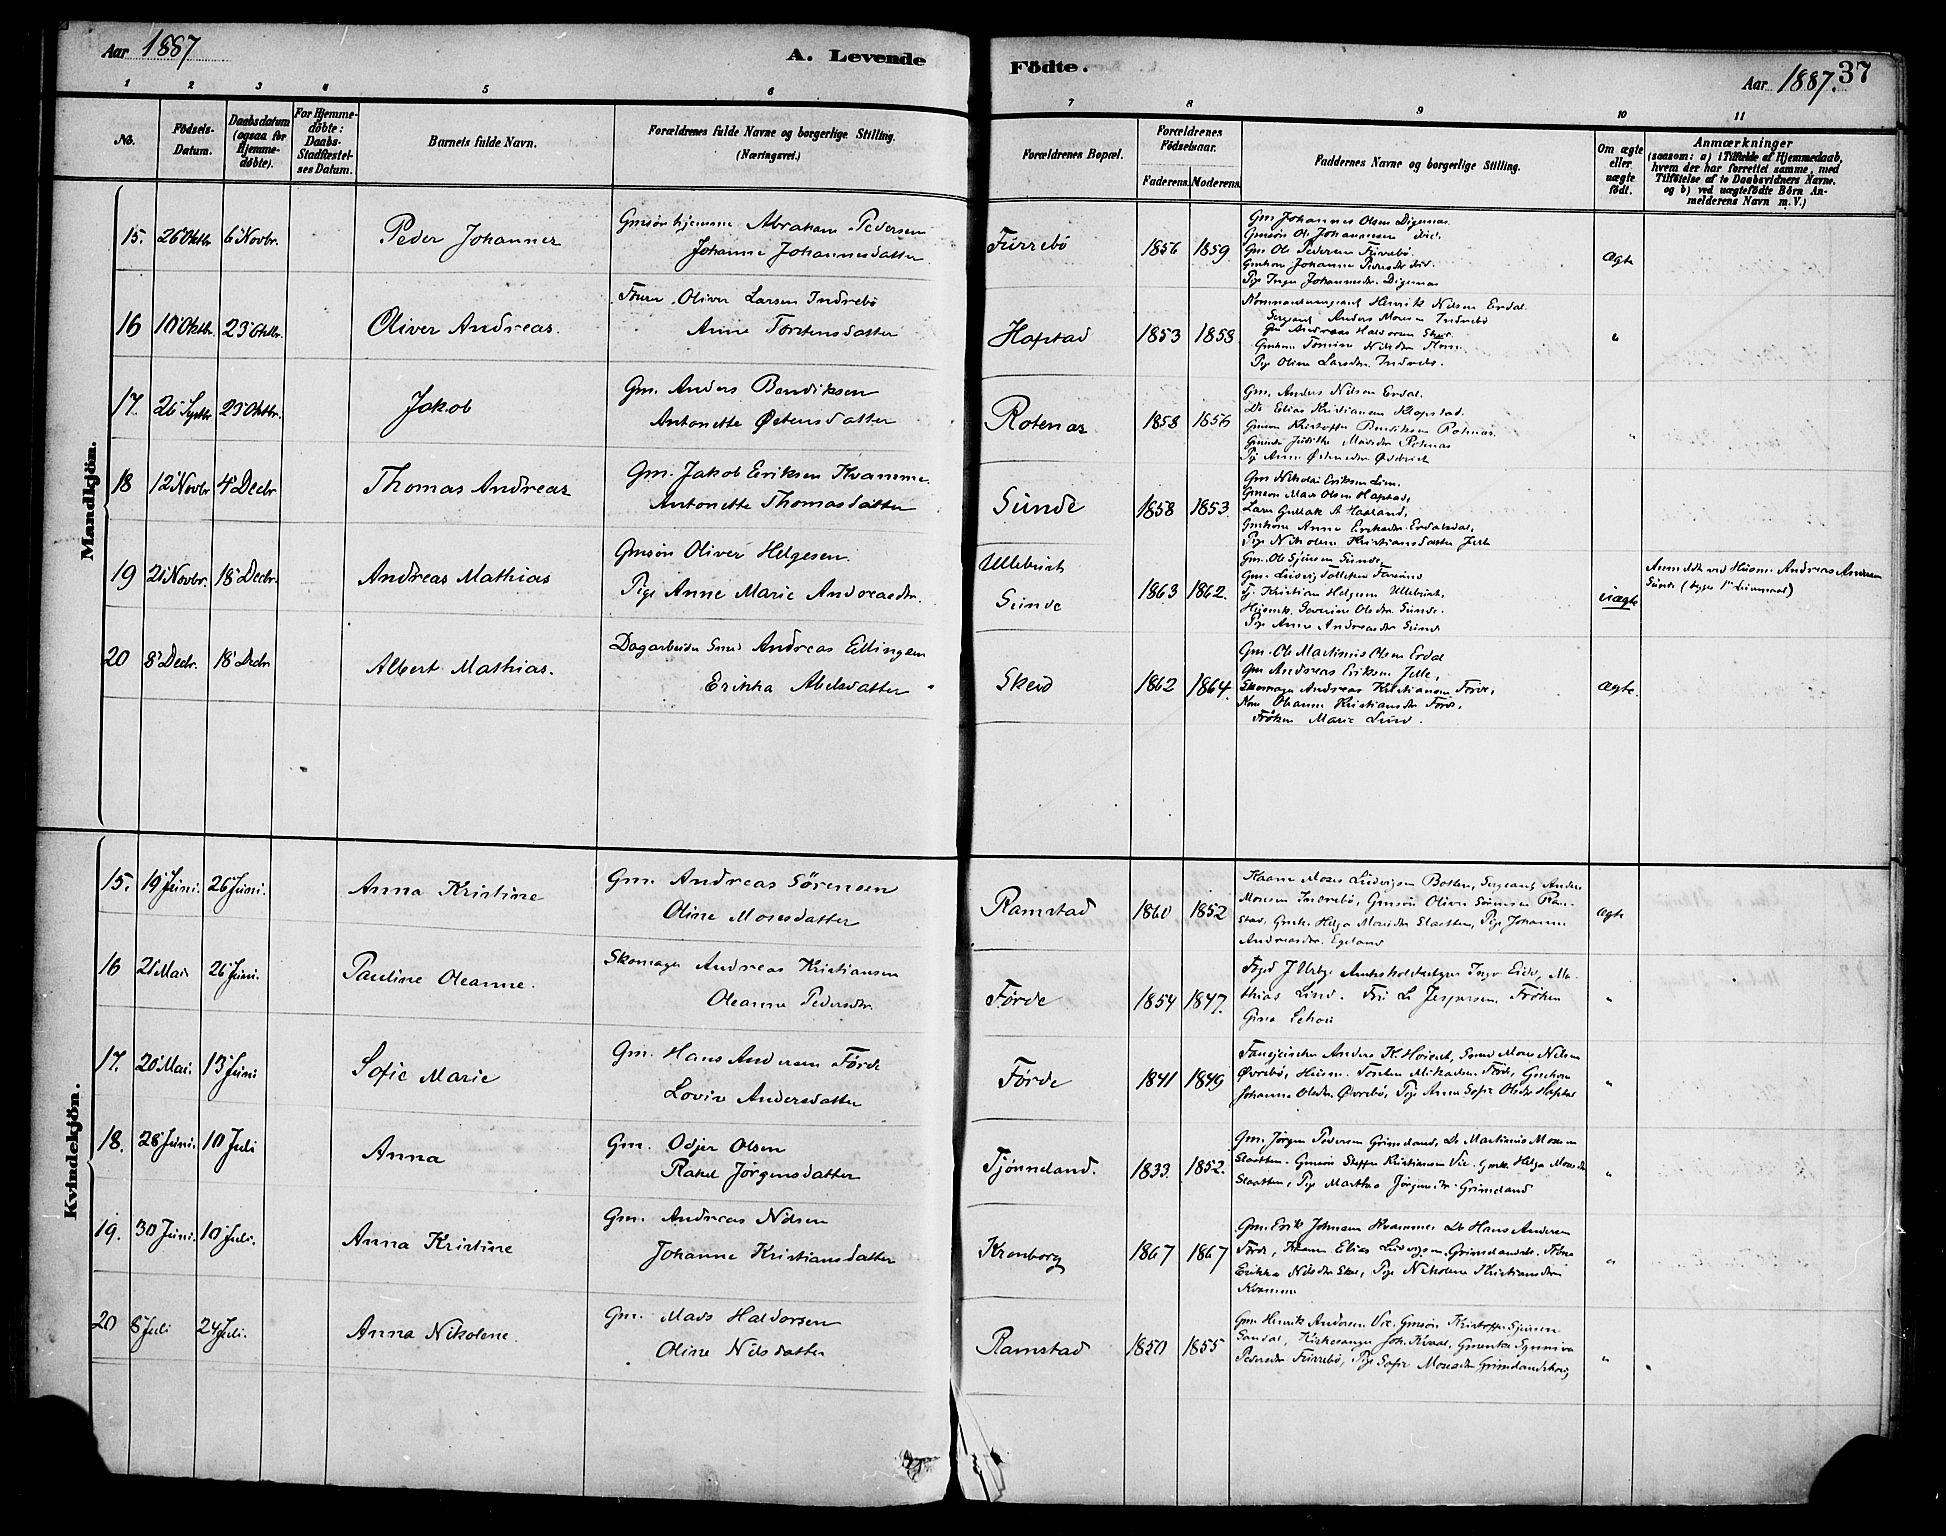 Aar 1887
A. Levende Födte.
Aar 1887. 37
1 2 3 4 5 6 7 8 9 10 11
No.
Födsels-Datum.
Daabsdatum (ogsaa for Hjemme-döbte).
For Hjemme-döbte: Daabs-Stadfæstel-ses Datum.
Barnets fulde Navn.
Forældrenes fulde Navne og borgerlige Stilling. (Næringsvei.)
Forældrenes Bopæl.
Forældrenes Födselsaar.
Faderens. Moderens.
Faddernes Navne og borgerlige Stilling.
Om ægte eller uægte födt.
Anmærkninger
(saasom: a) i Tilfælde af Hjemmedaab,
hvem der har forrettet samme, med
Tilföielse af to Daabsvidners Navne.
og b) ved uægtefödte Börn An-
melderens Navn m. V.)
Mandkjön.
15. 26 Oktbr 6 Novbr. Peder Johannes
Gmsøn hjemme Abraham Pedersen
Johanne Johannesdatter.
Furrebö 1856 1859.
Gm. Johannes Olsen Digernæs
Gmsön Ol. Johannesen ibid.
Gm Ole Pedersen Furrebö.
Gmkone Johanne Pedersdtr ibid.
Pige Inger Johannesdtr. Digernæs
Ægte
16 10 Oktbr. 23 Oktbr. Oliver Andreas.
Oliver Larsen Indrebö
Anne Torstensdatter
Hafstad 1853 1858
Henrik Nilsen Erdal
Sergeant Anders Mosesen Indrebö
Gm Andreas Halvorsen
Pige Oline Larsdtr. Indrebö.
"
17. 26 Septbr 23 Oktbr. Jakob
Gm. Anders Bendiksen
Antonette Østensdatter
Rotenæs 1858 1856
Gm. Anders Nilsen Erdal.
Do Elias Kristiansen Klopstad.
Gmsøn Kristoffer Bendiksen Rotnæs.
"
18 12 Novbr 4 Decbr Thomas Andreas
Gm. Jakob Eriksen Kvamme.
Antonette Thomasdatter
Sunde 1858 1853.
Gm Nikolai Eriksen Lien.
Gmsøn Mads Olsen Hafstad,
Gmkone Anne Eriksdtr. Erdalsdal,
Pige Nikoline Kristiansdatter Jelle
19 21 Novbr. 18 Decbr. Andreas Mathias
Gmsön Oliver Helgesen.
Pige Anne Marie Andreasdtr.
Ullebust
Sunde
1863 1862.
Gm. Ole Sjursen Sunde,
Kristian Helgesen Ullebust,
Pige Anne Andreasdtr Sunde
uægte
Anmeldt ved Husm. Andreas Andersen
Sunde (begges 1ste Leiermaal)
20 8 Decbr. 18 Decbr Albert Mathias.
Dagarbeider Smed Andreas Ellingsen
Erikka Abelsdatter
Skeid 1862 1864.
Gm. Ole Martinus Olsen Erdal
Gm Andreas Eriksen Jelle,
Skomager Andreas Kristiansen Førde,
Kone Oleanne Kristiansdtr Førde,
Frøken Marie Lind.
Ægte.
Kvindekjön.
15. 19 Juni. 26 Juni. Anna Kristine
Gm. Andreas Sörensen
Oline Mosesdatter
Ramstad 1860 1852
Moses Ludvigsen Botten, Sergeant Anders
Mosesen Indrebö, Gmsön Oliver Sörensen Ram-
stad, Gmk. Helga Mosesdtr Slaatten, Pige Johanne
Andreasdtr. Egeland
Ægte
16 21 Mai 26 Juni. Pauline Oleanne.
Skomager Andreas Kristiansen
Oleanne Pedersdtr.
Förde 1854 1847.
Ma-
thias Lind. Fru L Jespersen. Frøken
Gina
"
17. 20 Mai. 13 Juni Sofie Marie
Gm. Hans Andersen Förde
Lovise Andersdatter
Förde 1841 1849
Mons Nilsen
Øvrebö, Husm. Torsten Mikaelsen Förde, Gmkone
Johanne Olsdtr. Øvrebö, Pige Anne Sofie Olsdtr Hafstad
"
18. 28 Juni. 10 Juli Anna
Gm. Odjer Olsen
Rakel Jörgensdatter
Tjönneland. 1833. 1852.
Gm. Jörgen Pedersen Grimeland, Do Martinus Mosesen
Slaatten. Gmsön Steffen Kristiansen Vie. Gmk. Helga Mosesdtr
Slaatten, Pige Martha Jörgensdtr Grimeland
"
19. 30 Juni. 10 Juli. Anna Kristine
Gm. Andreas Nilsen
Johanne Kristiansdatter
Kronborg 1867 1867
Gm. Erik Johnsen Kvamme. Do Hans Andersen
Förde, Elias Ludvigsen Grimelands.
Erikka Nilsdtr Skei, Pige Nikolene Kristiansdtr
Kvamme
"
20 8 Juli 24 Juli. Anna Nikolene.
Gm. Mads Haldorsen
Oline Nilsdatter
Ramstad 1850 1855
Gm Henrik Andersen Vie. Gmsön Kristoffer Sjursen
Sandal, Kirkesanger Joh. Kvaal, Gmenke Synneva
Pedersdtr Furrebö, Pige Sofie Monsdtr Grimelandshaug
"